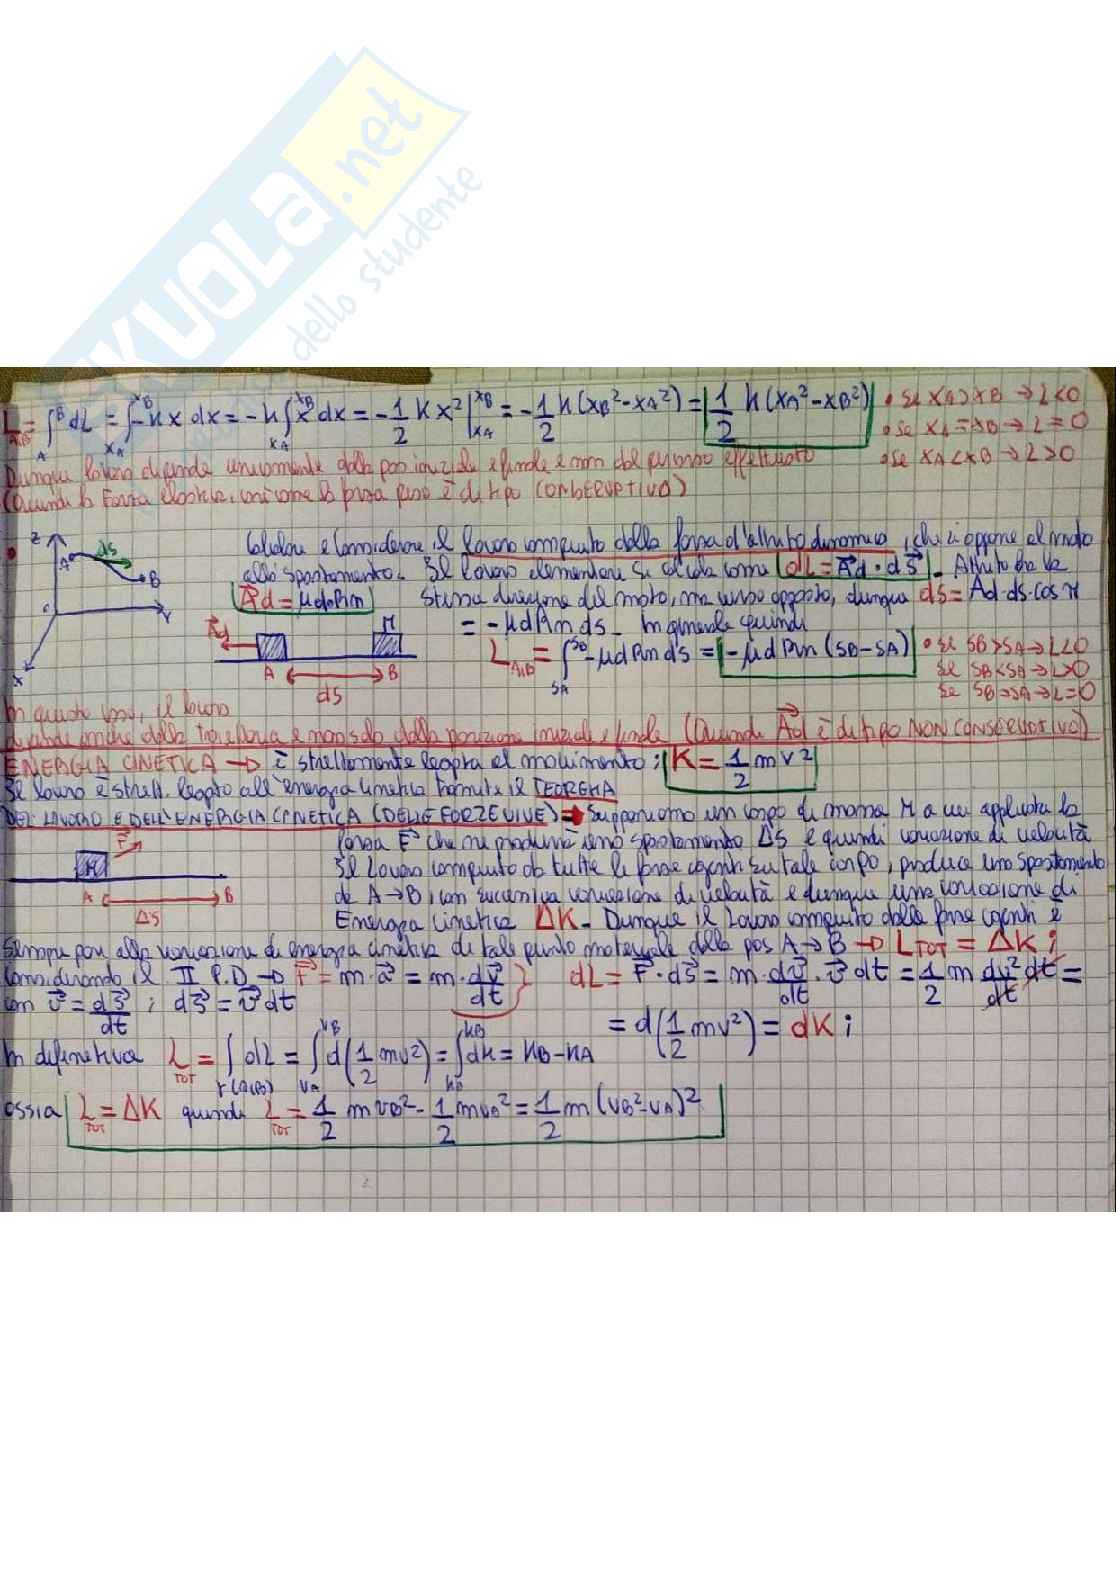 SKUOLA.net
dello studente
L_{A,B} = ∫_A^B dL = ∫_{xA}^{xB} -kx dx = -k ∫_{xA}^{xB} x dx = -1/2 k x² |_{xA}^{xB} = -1/2 k (xB² - xA²) = 1/2 k (xA² - xB²) • se xA > xB → L<0
• se xA = xB → L = 0
• se xA < xB → L > 0
Dunque lavoro dipende unicamente dalla pos iniziale e finale e non dal percorso effettuato
(Quindi la Forza elastica, così come la forza peso è di tipo CONSERVATIVO)
z A ds B y x
Calcolare e Considerare il lavoro compiuto dalla forza d'attrito dinamico, che si oppone al moto
allo spostamento. Il lavoro elementare si calcola come dL = Ad · ds. Attrito ha la
Ad = μd Rn stessa direzione del moto, ma verso opposto, dunque ds = Ad·ds·cos π
= -μd Rn ds. In generale quindi
M A B ds
L_{A,B} = ∫_{SA}^{SB} -μd Rn ds = -μd Rn (SB - SA) • se SB > SA → L<0
se SB < SA → L>0
se SB = SA → L=0
In questo caso, il lavoro
dipende anche dalla traiettoria e non solo dalla posizione iniziale e finale (Quindi Ad è di tipo NON CONSERVATIVO)
ENERGIA CINETICA → È strettamente legata al movimento; K = 1/2 mv²
Il lavoro è strett. legato all'energia cinetica tramite il TEOREMA
DEL LAVORO E DELL'ENERGIA CINETICA (DELLE FORZE VIVE) → Supponiamo un corpo di massa M a cui applicata la
forza F che ne produrrà uno spostamento ΔS e quindi variazione di velocità
Il Lavoro compiuto da tutte le forze agenti su tale corpo, produce uno spostamento
da A→B, con successiva variazione di velocità e dunque una variazione di
M F A B ΔS
Energia Cinetica ΔK. Dunque il Lavoro compiuto dalle forze agenti è
Sempre pari alla variazione di energia cinetica di tale punto materiale dalla pos A→B → L_TOT = ΔK;
Considerando il II P.D → F = m·a = m·dv/dt } dL = F·ds = m·dv/dt·v dt = 1/2 m dv²/dt dt =
con v = ds/dt ; ds = v dt
= d(1/2 mv²) = dK;
In definitiva L_TOT = ∫_{γ(A,B)} dL = ∫_{vA}^{vB} d(1/2 mv²) = ∫_{KA}^{KB} dK = KB - KA
ossia L_TOT = ΔK quindi L_TOT = 1/2 mvB² - 1/2 mvA² = 1/2 m (vB² - vA)²